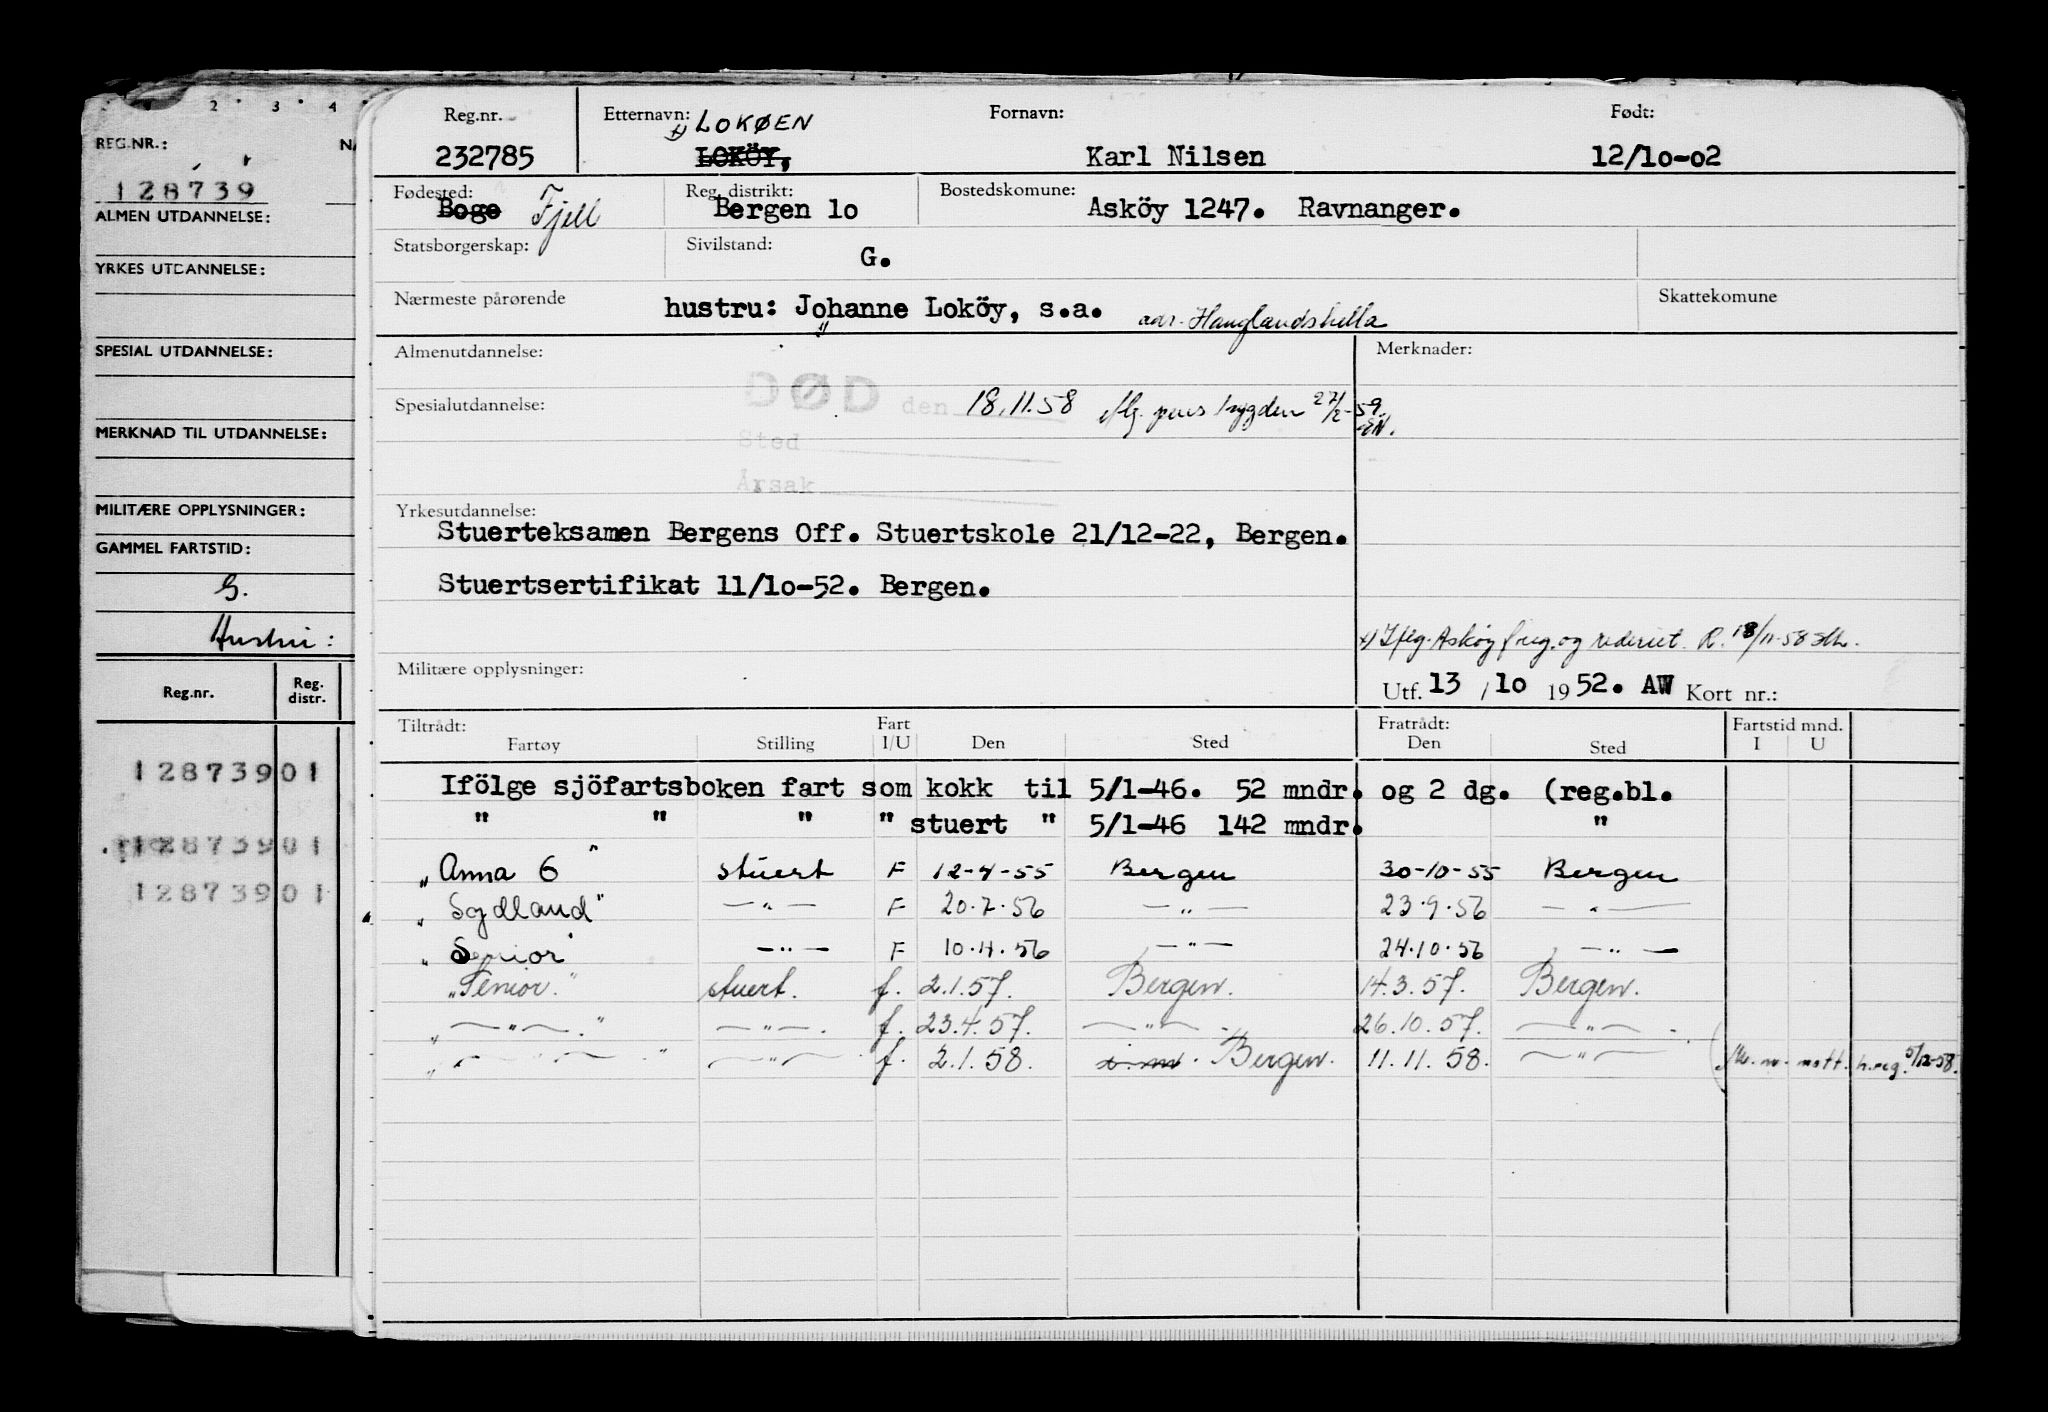 2 3 4
REG.NR.:
128739
ALMEN UTDANNELSE:
YRKES UTDANNELSE:
SPESIAL UTDANNELSE:
MERKNAD TIL UTDANNELSE:
MILITÆRE OPPLYSNINGER:
GAMMEL FARTSTID:
G.
Hustru:
Reg.nr. Reg. distr.
128739 01
128739 01
128739 01
Reg.nr. Etternavn: Fornavn: Født:
x) LOKØEN
232785 LOKÖY, Karl Nilsen 12/10-02
Fødested: Reg. distrikt: Bostedskomune:
Boge Fjell Bergen 10 Asköy 1247. Ravnanger.
Statsborgerskap: Sivilstand: G.
Nærmeste pårørende hustru: Johanne Loköy, s.a. adr. Hanglandshella Skattekomune
Almenutdannelse: Merknader:
DØD den 18.11.58 pens trygden 27/2-59. EN.
Spesialutdannelse:
Sted
Årsak
Yrkesutdannelse:
Stuerteksamen Bergens Off. Stuertskole 21/12-22, Bergen.
Stuertsertifikat 11/10-52. Bergen.
x) Ifлg. Asköy freg. og rederiet. R. 18/11-58
Militære opplysninger:
Utf. 13/10 1952. AW Kort nr.:
Tiltrådt: Fart Fratrådt: Fartstid mnd.
Fartøy Stilling I/U Den Sted Den Sted I U
Ifölge sjöfartsboken fart som kokk til 5/1-46. 52 mndr. og 2 dg. (reg.bl.
" " " " stuert " 5/1-46 142 mndr. "
"Anna 6" stuert F 12-4-55 Bergen 30-10-55 Bergen
"Sydland" —"— F 20.7.56 —"— 23.9.56 —"—
"Senior" —"— F 10.4.56 —"— 24.10.56 —"—
"Senior." stuert. f. 2.1.57. Bergen. 14.3.57. Bergen.
"—"—." —"—. f. 23.4.57. —"— 26.10.57. —"—.
"—"—" —"—. f. 2.1.58. Bergen. 11.11.58. —"— mott. h.reg. 5/12-58.